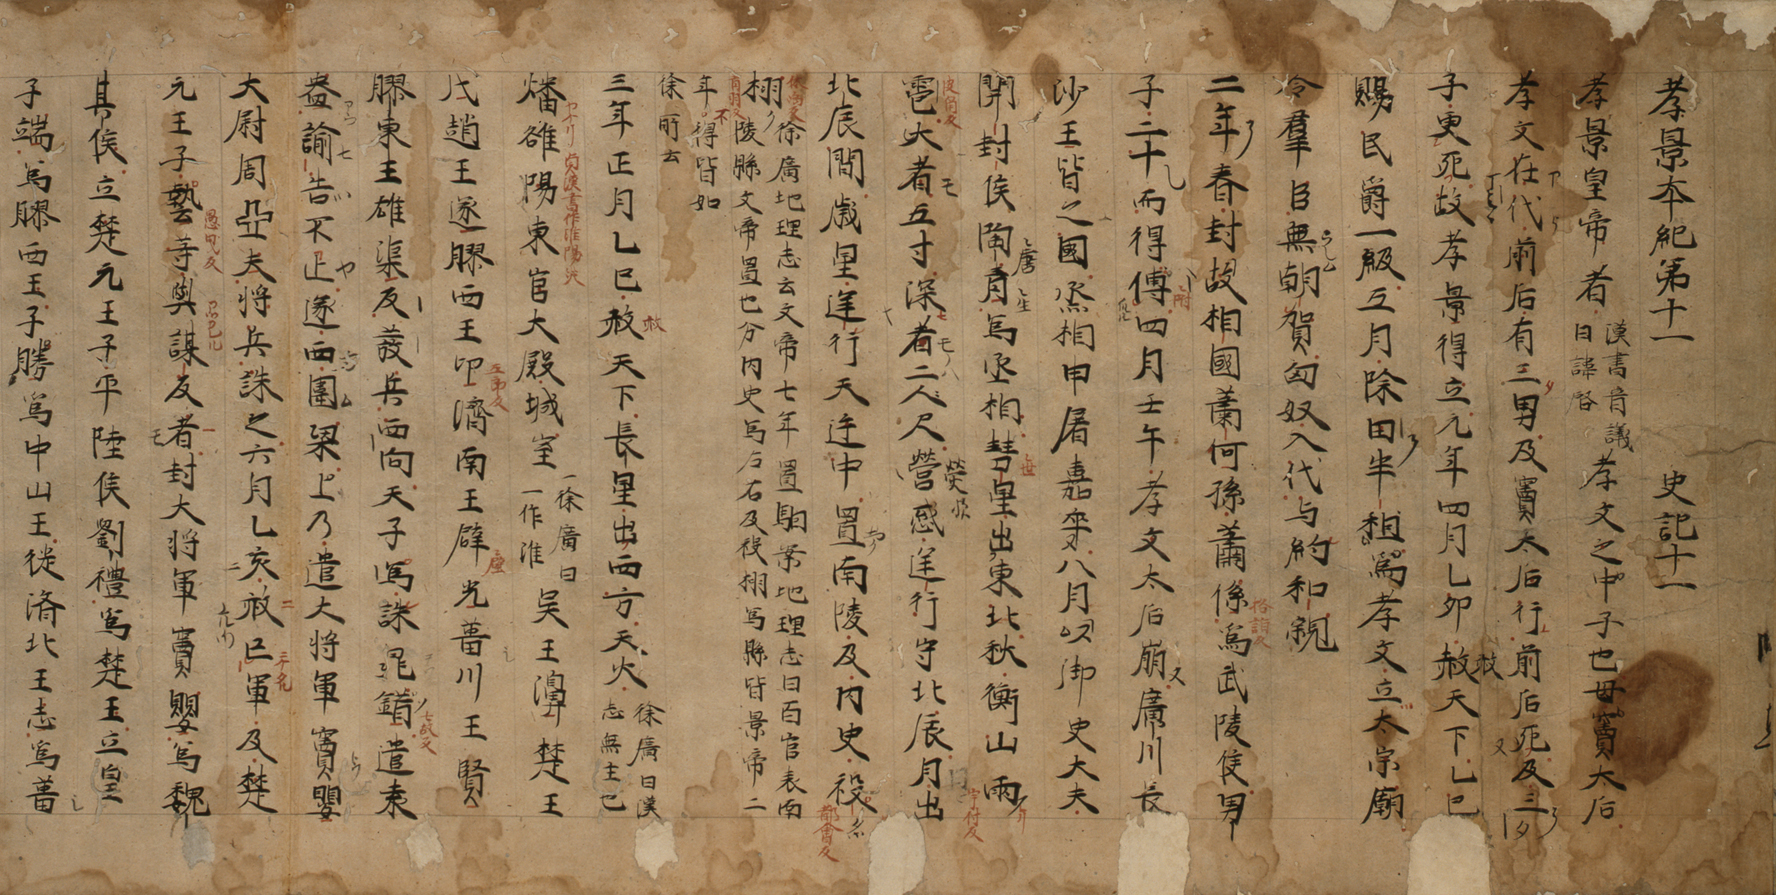 孝景本紀第十一 史記十一
孝景皇帝者漢書音義曰諱啓孝文之中子也母竇太后
孝文在代前后有三男及竇太后行前后死及三
子更死故孝景得立元年四月乙卯赦天下乙巳
賜民爵一級五月除田半租爲孝文立太宗廟
令羣臣無朝賀匈奴入代与約和親
二年春封故相國蕭何孫蕭係爲武陵侯男
子二十而得傅四月壬午孝文太后崩廣川長
沙王皆之國丞相申屠嘉卒八月以御史大夫
開封侯陶青爲丞相彗星出東北秋衡山雨
雹大者五寸深者二尺營惑逆行守北辰月出
北辰間歲星逆行天廷中置南陵及内史役
栩徐廣地理志云文帝七年置駰案地理志曰百官表南
陵縣文帝置也分内史爲左右及役栩爲縣皆景帝二
年不得皆如
徐所云
三年正月乙巳赦天下長星出西方天火徐廣曰漢志無主已
燔雒陽東宮大殿城室徐廣曰一作淮吴王濞楚王
戊趙王遂膠西王卬濟南王辟光菑川王賢
膠東王雄渠反發兵西向天子爲誅晁錯遣袁
盎諭告不止遂西圍梁上乃遣大將軍竇嬰
大尉周亞夫將兵誅之六月乙亥赦亡軍及楚
元王子藝等與謀反者封大將軍竇嬰爲魏
其侯立楚元王子平陸侯劉禮爲楚王立皇
子端爲膠西王子勝爲中山王徙済北王志爲菑